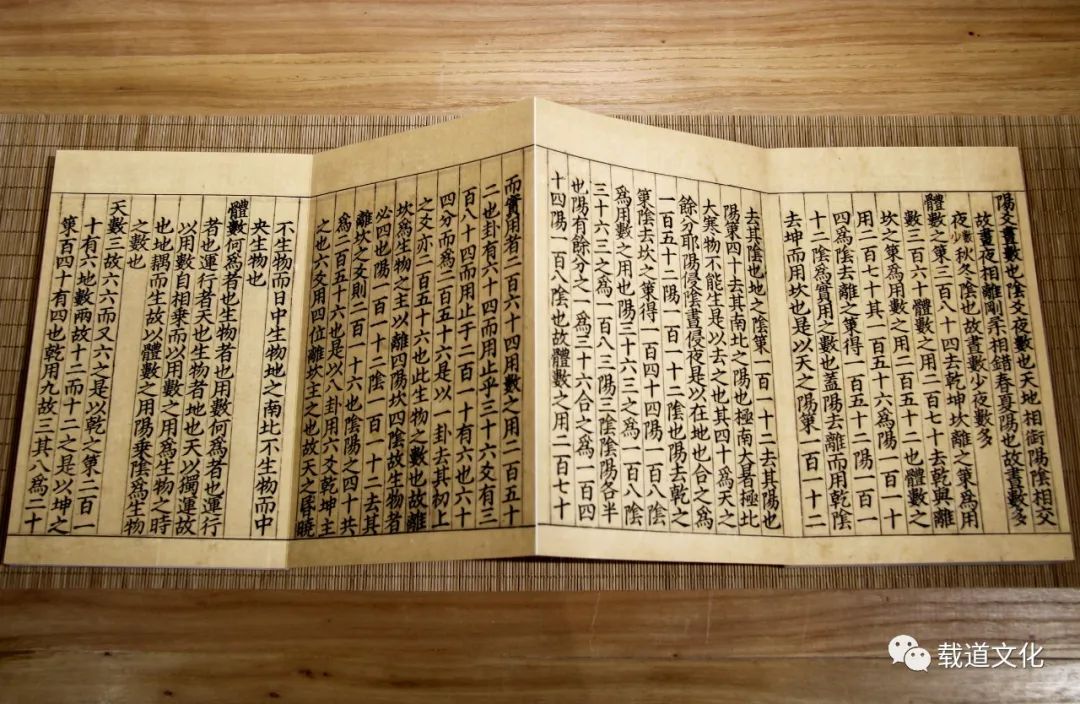 陽爻晝數也陰爻夜數也天地相銜陽陰相交
故晝夜相離剛柔相錯春夏陽也故晝數多
夜數少秋冬陰也故晝數少夜數多
體數之策三百八十四去乾坤坎離之策爲用
數三百六十體數之用二百七十去乾與離
坎之策爲用數之用二百五十二也體數之
用二百七十其一百五十六爲陽一百一十
四爲陰去離之策得一百五十二陽一百一
十二陰爲實用之數也蓋陽去離而用乾陰
去坤而用坎也是以天之陽策一百一十二
去其陰也地之陰策一百一十二去其陽也
陽策四十去其南北之陽也極南大暑極北
大寒物不能生是以去之也其四十爲天之
餘分耶陽侵陰晝侵夜是以在地也合之爲
一百五十二陽一百一十二陰也陽去乾之
策陰去坎之策得一百四十四陽一百八陰
爲用數之用也陽三十六三之爲一百八陰
三十六三之爲一百八三陽三陰陰陽各半
也陽有餘分之一爲三十六合之爲一百四
十四陽一百八陰也故體數之用二百七十
而實用者二百六十四用數之用二百五十
二也卦有六十四而用止乎三十六爻有三
百八十四而用止于二百一十有六也六十
四分而爲二百五十六是以一卦去其初上
之爻亦二百五十六也此生物之數也故離
坎爲生物之主以離四陽坎四陰故生物者
必四也陽一百一十二陰一百一十二去其
離坎之爻則二百一十六也陰陽之四十共
爲二百五十六也是以八卦用六爻乾坤主
之也六爻用四位離坎主之也故天之昏曉
不生物而日中生物地之南北不生物而中
央生物也
體數何爲者也生物者也用數何爲者也運行
者也運行者天也生物者地也天以獨運故
以用數自相乗而以用數之用爲生物之時
也地耦而生故以體數之用陽乗陰爲生物
之數也
天數三故六六而又六之是以乾之策二百一
十有六地數兩故十二而十二之是以坤之
策百四十有四也乾用九故三其八爲二十
载道文化